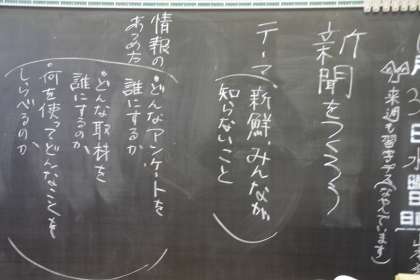 月2日 曜日
来週も習字デス(なやんでいます)
新聞をつくろう
テーマ 新鮮,みんなが
知らないこと
情報の
あつめ方
どんなアンケートを
誰にするか
どんな取材を
誰にするのか、
何を使ってどんなことを
しらべるのか